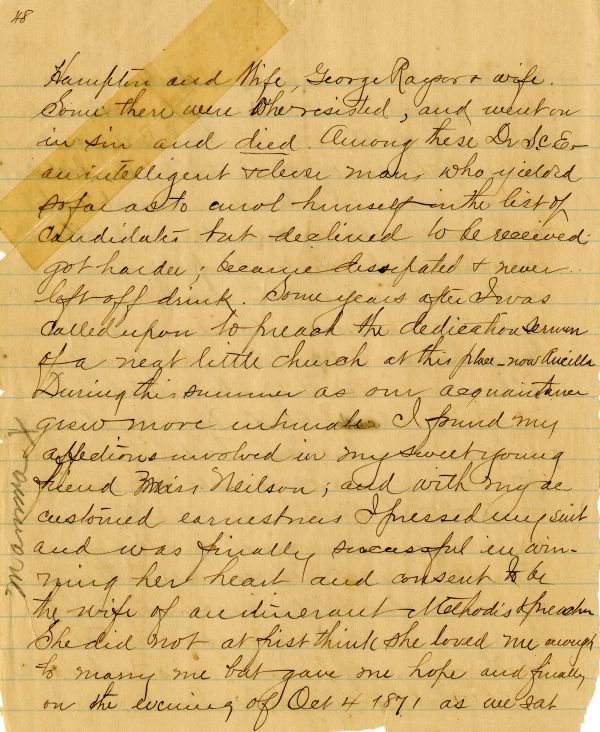 48
Hampton and Wife, George Raysor & wife.
Some there were who resisted, and went on
in sin and died. Among these Dr
an intelligent & clever man, who yielded
so far as to enrol himself in the list of
candidates but declined to be received.
got harder; became dissipated & never
left off drink. Some years after I was
called upon to preach the dedication sermon
of a neat little church at this place - now Aucilla
During this summer as our acquaintance
grew more intimate I found my
affections involved in my sweet young
friend Miss Neilson; and with my ac
customed earnestness I pressed my suit
and was finally successful in win-
ning her heart and consent to be
the wife of an itinerant Methodist preacher
She did not at first think she loved me enough
to marry me but gave me hope and finally
on the evening of Oct 4 1871 as we sat
Mamma